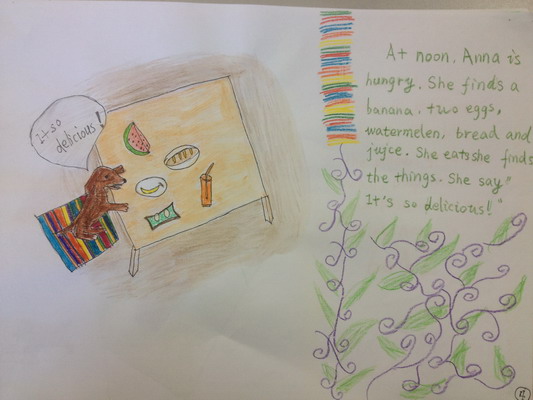 It so
delicious!
At noon. Anna is
hungry. She finds a
banana, two eggs,
watermelen, bread and
jujce. She eatsshe finds
the things. She say"
It's so delicious!"